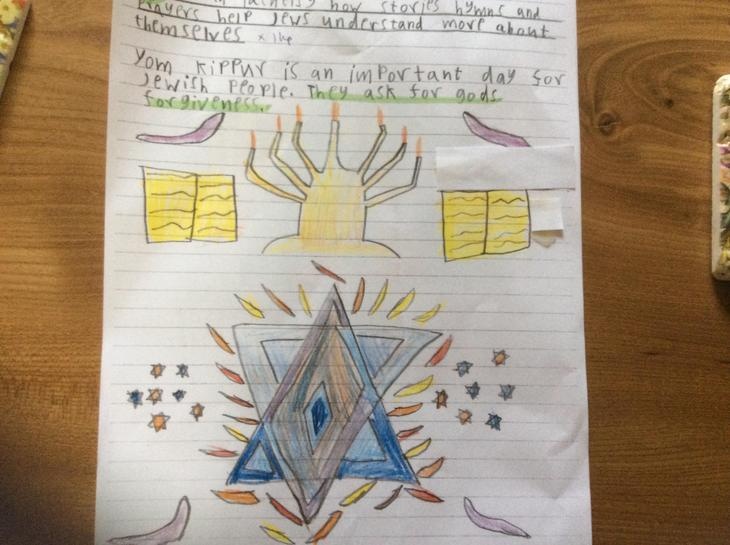 how stories hymns and
prayers help Jews understand more about
themselves
Yom Kippur is an important day for
Jewish people. They ask for gods
forgiveness.